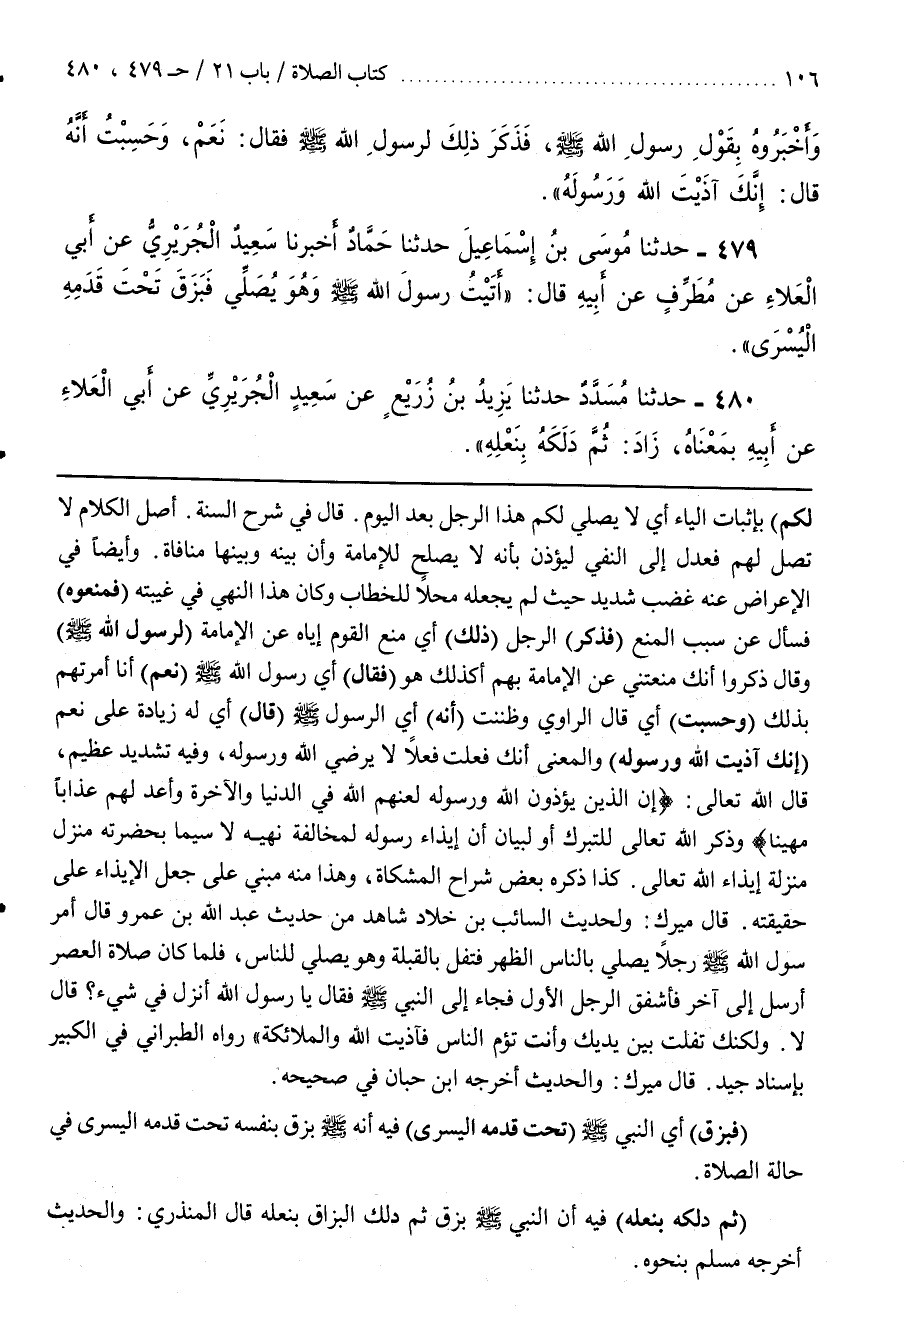 ١٠٦ ........................................ كتاب الصلاة / باب ٢١ / حـ ٤٧٩ ، ٤٨٠
وَأَخْبَرُوهُ بِقَوْلِ رسولِ الله ﷺ، فَذَكَرَ ذلِكَ لرسولِ الله ﷺ فقال: نَعَمْ، وَحَسِبْتُ أَنَّهُ
قال: إِنَّكَ آذَيْتَ الله وَرَسُولَهُ».
٤٧٩ ـ حدثنا مُوسَى بنُ إِسْمَاعِيلَ حدثنا حَمَّادٌ أخبرنا سَعِيدٌ الْجُرَيْرِيُّ عن أَبي
الْعَلاءِ عن مُطَرِّفٍ عن أَبِيهِ قال: «أَتَيْتُ رسولَ الله ﷺ وَهُوَ يُصَلِّي فَبَزَقَ تَحْتَ قَدَمِهِ
الْيُسْرَى».
٤٨٠ ـ حدثنا مُسَدَّدٌ حدثنا يَزِيدُ بنُ زُرَيْعٍ عن سَعِيدٍ الْجُرَيْرِيِّ عن أَبي الْعَلاءِ
عن أَبِيهِ بمَعْنَاهُ، زَادَ: ثُمَّ دَلَكَهُ بِنَعْلِهِ».
لكم) بإثبات الياء أي لا يصلي لكم هذا الرجل بعد اليوم. قال في شرح السنة. أصل الكلام لا
تصل لهم فعدل إلى النفي ليؤذن بأنه لا يصلح للإمامة وأن بينه وبينها منافاة. وأيضاً في
الإعراض عنه غضب شديد حيث لم يجعله محلاً للخطاب وكان هذا النهي في غيبته (فمنعوه)
فسأل عن سبب المنع (فذكر) الرجل (ذلك) أي منع القوم إياه عن الإمامة (لرسول الله ﷺ)
وقال ذكروا أنك منعتني عن الإمامة بهم أكذلك هو (فقال) أي رسول الله ﷺ (نعم) أنا أمرتهم
بذلك (وحسبت) أي قال الراوي وظننت (أنه) أي الرسول ﷺ (قال) أي له زيادة على نعم
(إنك آذيت الله ورسوله) والمعنى أنك فعلت فعلاً لا يرضي الله ورسوله، وفيه تشديد عظيم،
قال الله تعالى: ﴿إن الذين يؤذون الله ورسوله لعنهم الله في الدنيا والآخرة وأعد لهم عذاباً
مهينا﴾ وذكر الله تعالى للتبرك أو لبيان أن إيذاء رسوله لمخالفة نهيه لا سيما بحضرته منزل
منزلة إيذاء الله تعالى. كذا ذكره بعض شراح المشكاة، وهذا منه مبني على جعل الإيذاء على
حقيقته. قال ميرك: ولحديث السائب بن خلاد شاهد من حديث عبد الله بن عمرو قال أمر
سول الله ﷺ رجلاً يصلي بالناس الظهر فتفل بالقبلة وهو يصلي للناس، فلما كان صلاة العصر
أرسل إلى آخر فأشفق الرجل الأول فجاء إلى النبي ﷺ فقال يا رسول الله أنزل في شيء؟ قال
لا. ولكنك تفلت بين يديك وأنت تؤم الناس فآذيت الله والملائكة» رواه الطبراني في الكبير
بإسناد جيد. قال ميرك: والحديث أخرجه ابن حبان في صحيحه.
(فبزق) أي النبي ﷺ (تحت قدمه اليسرى) فيه أنه ﷺ بزق بنفسه تحت قدمه اليسرى في
حالة الصلاة.
(ثم دلكه بنعله) فيه أن النبي ﷺ بزق ثم دلك البزاق بنعله قال المنذري: والحديث
أخرجه مسلم بنحوه.